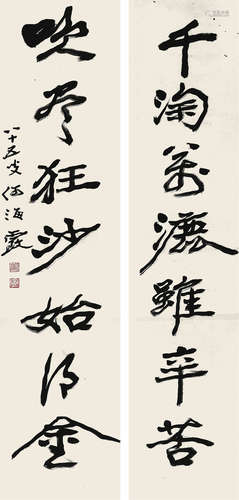 千淘万漉雖辛苦
吹尽狂沙始得金
八十五叟何海霞